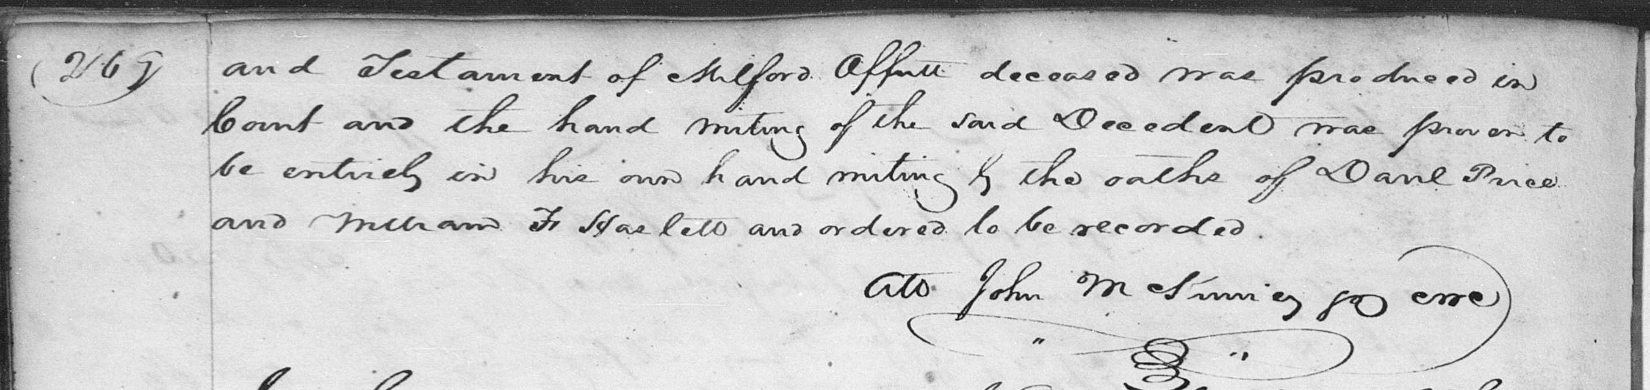 (267) and Testament of Milford Offutt deceased was produced in
Court and the hand writing of the said Decedent was proven to
be entirely in his own hand writing by the oaths of Danl Price
and William F Haslett and ordered to be recorded.
Att John McKinney Jr